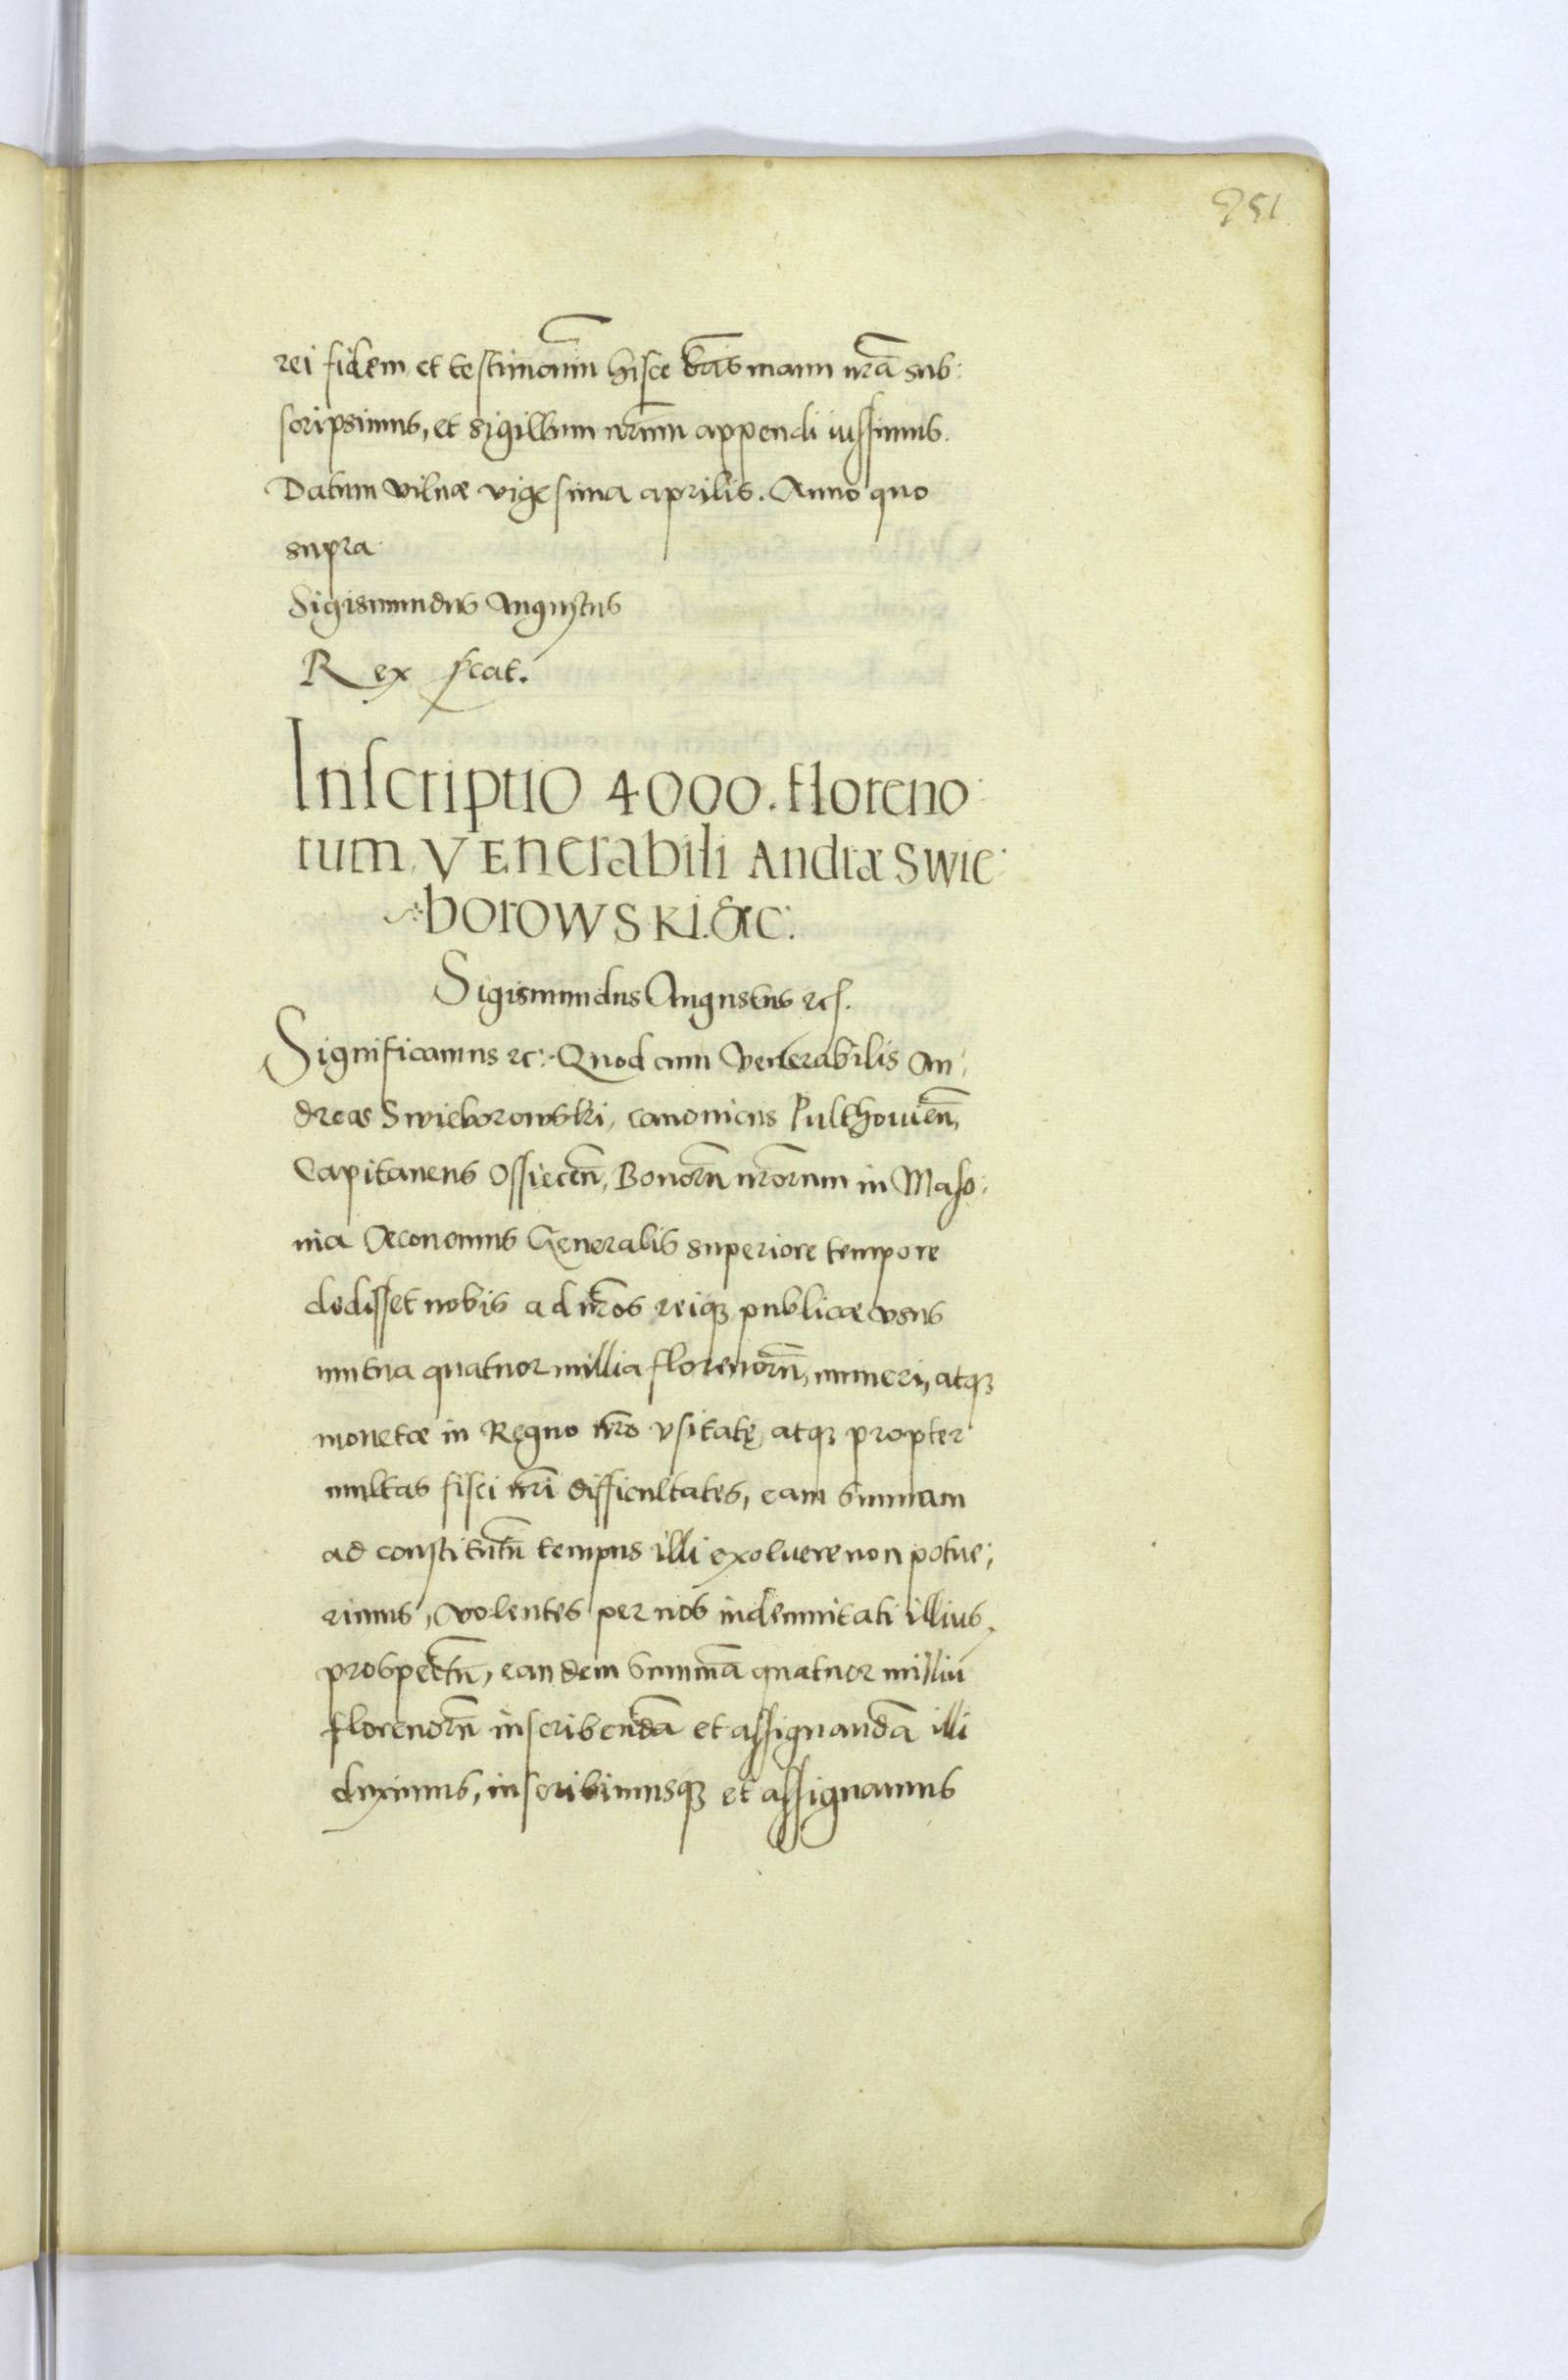 151
rei fidem et testimoniũ hisce l̃ras manu nr̃a sub:
scripsimus, et sigillum nr̃um appendi iussimus.
Datum Vilnæ vigesima aprilis. Anno quo
supra
Sigismundus Augustus
Rex scat.
Inscriptio 4000. Floreno:
rum, VEnerabili Andræ Swie:
borowski. &c:
Sigismundus Augustus etc.
Significamus etc: Quod cum Venerabilis An:
dreas Swieborowski, canonicus Pulthouień,
Capitaneus Ossieceñ, Bonorũ nr̃orum in Maso:
uia Oeconomus Generalis superiore tempore
dedisset nobis ad nr̃os reiq3 publicæ vsus
mutua quatuor millia florenorũ, numeri, atq3
monetæ in Regno nr̃o vsitatę atq3 propter
multas fisci nr̃i difficultates, eam summam
ad constitutũ tempus illi exoluere non potue:
rimus, volentes per nos indemnitati illius
prospectũ, eandem summã quatuor milliũ
florenorũ inscribendã et assignandã illi
duximus, inscribimusq3 et assignamus